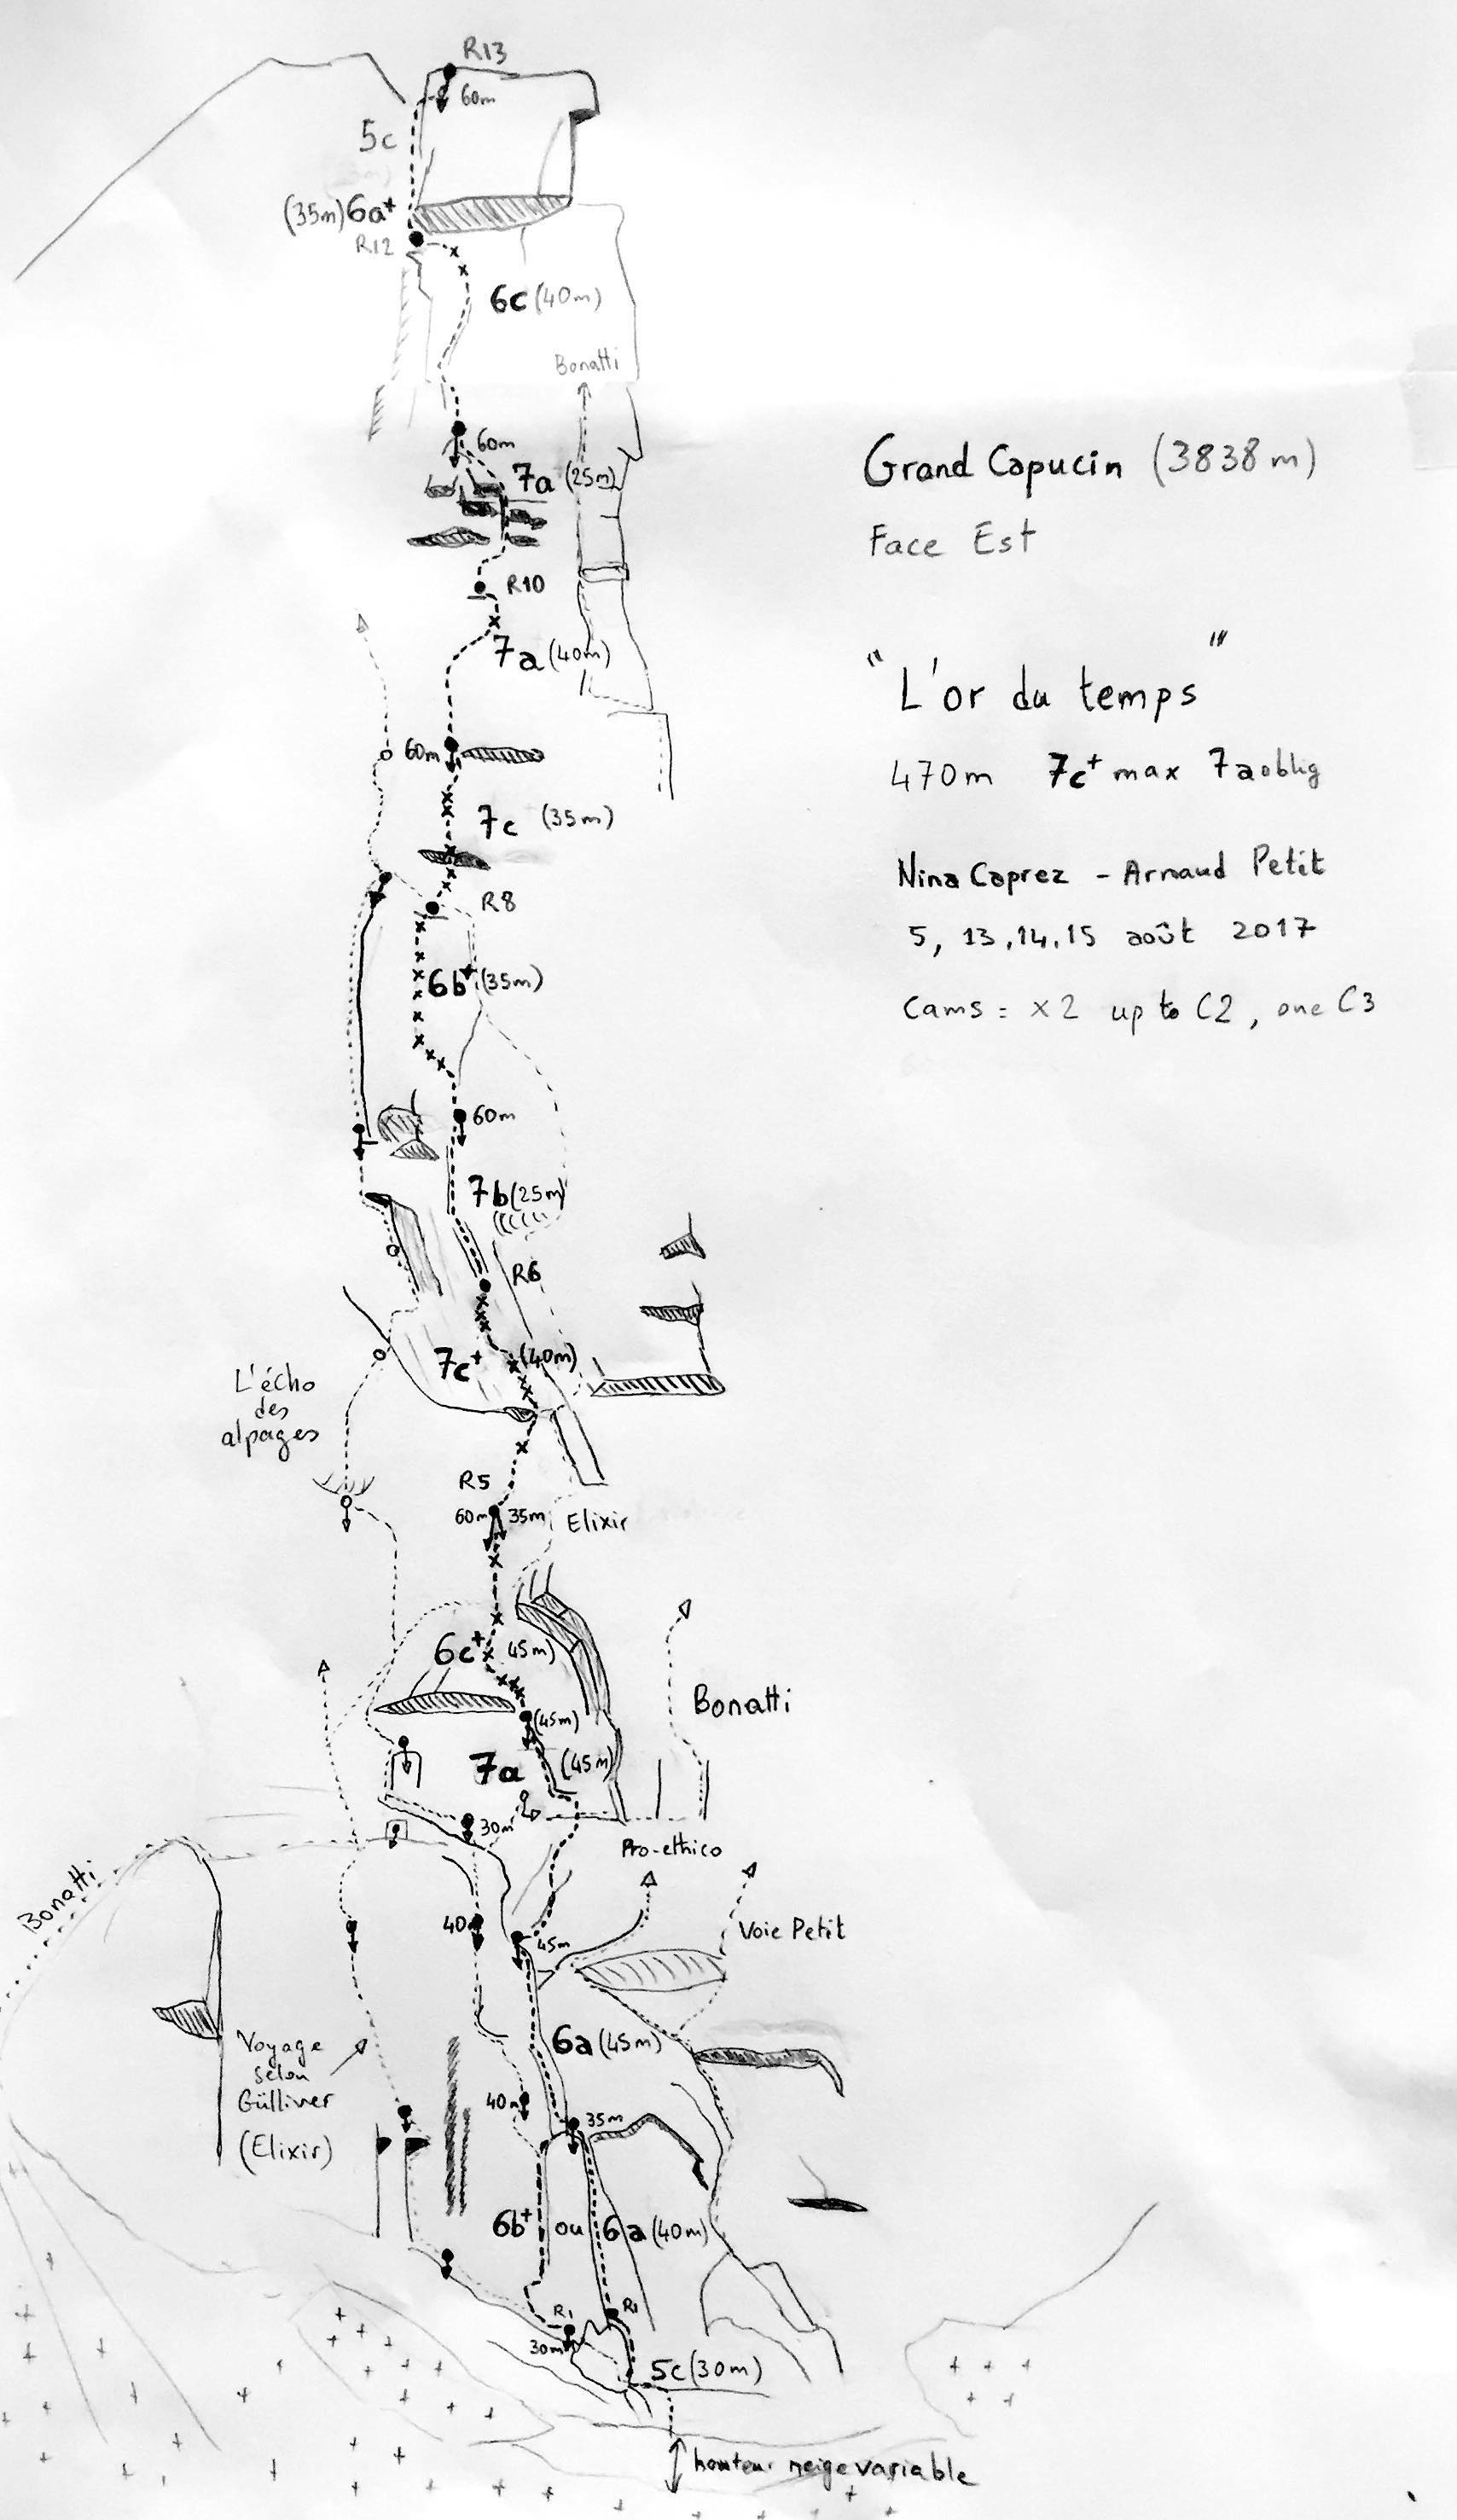 R13
60m
5c
(35m) 6a+
R12
6c (40m)
Bonatti
60m
7a (25m)
R10
7a (40m)
60m
7c (35m)
R8
6b+ (35m)
60m
7b (25m)
R6
7c+ (40m)
L'écho
des
alpages
R5
60m 35m
Elixir
6c+ 45m)
(45m)
Bonatti
7a (45m)
30m
Pro-ethico
Bonatti
40m
45m
Voie Petit
Voyage
selon
Gülliver
(Elixir)
6a (45m)
40m
35m
6b+ ou 6a (40m)
R1
R1
30m
5c (30m)
hauteur neige variable
Grand Capucin (3838m)
Face Est
"L'or du temps"
470m 7c+ max 7a oblig
Nina Caprez - Arnaud Petit
5, 13, 14, 15 août 2017
Cams = x2 up to C2, one C3